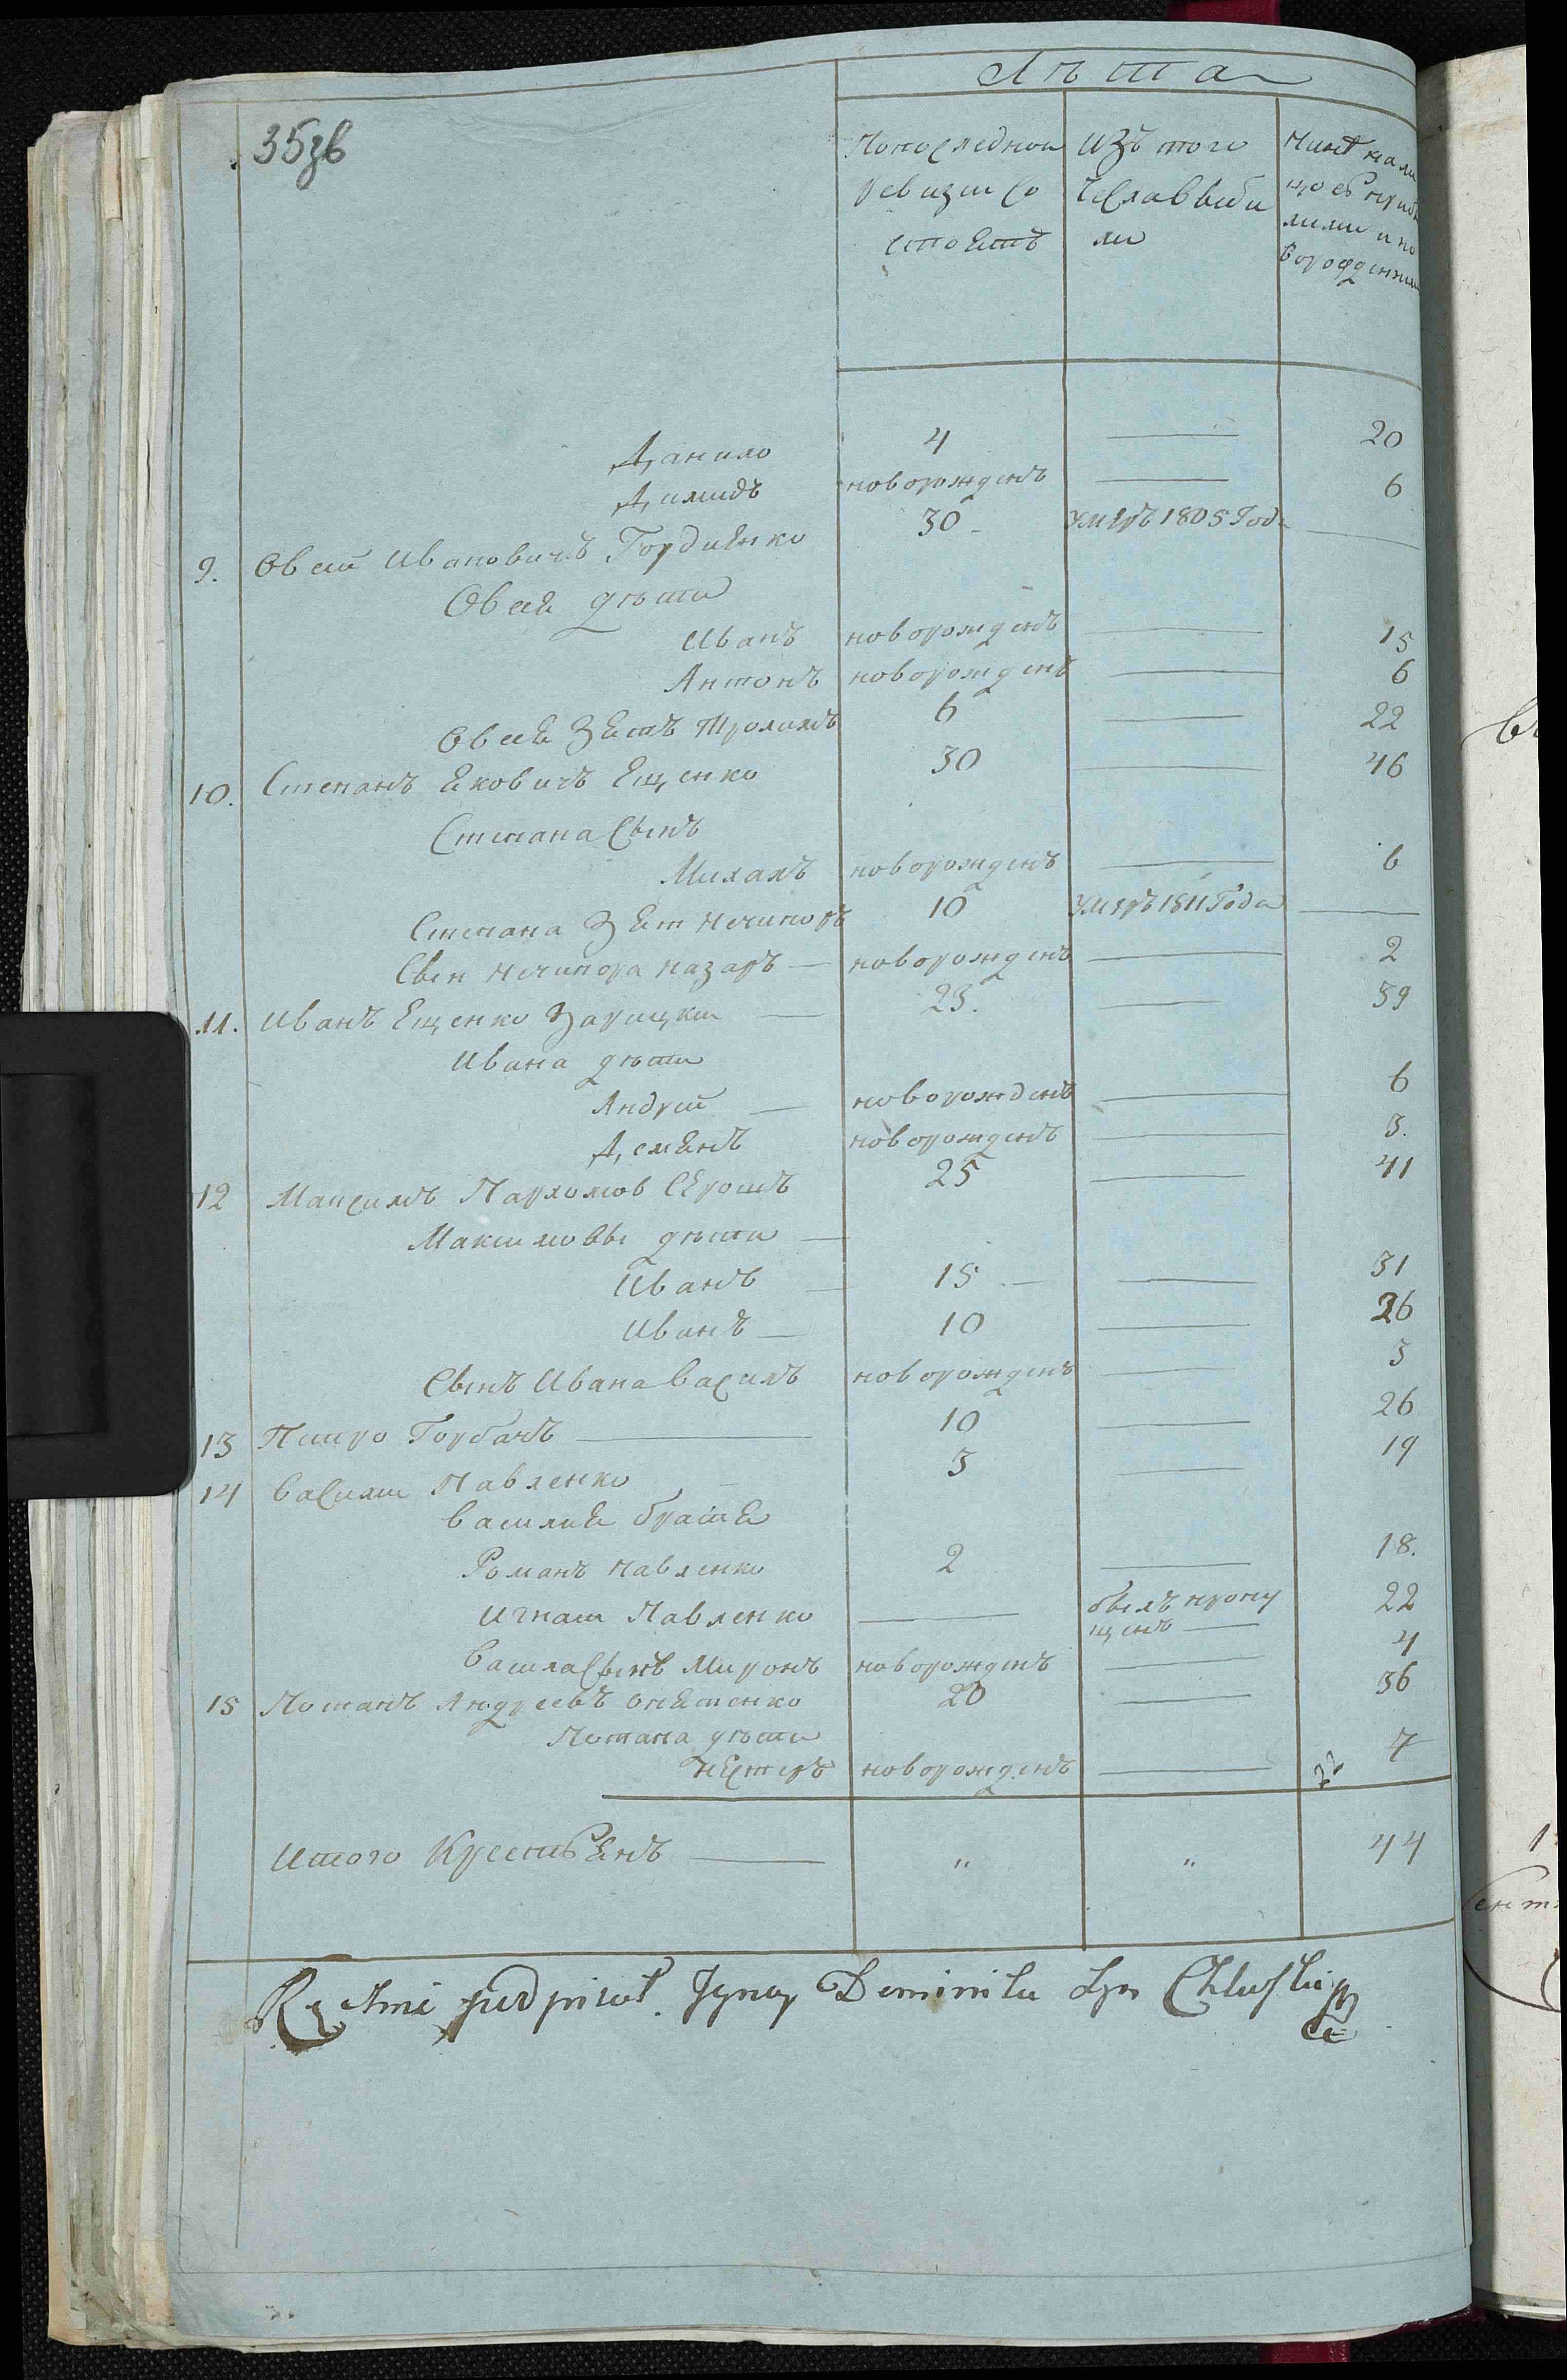 Лѣта
35зв
По последней ревизіи состоятъ | изъ того числа выбыли | Нинѣ на лицо съ прибилими и новорожденними
Данило 4 — 20
Димидъ новорожденъ — 6
9. Овсій Ивановичъ Гордиѣнко 30 умеръ 1805 Года —
Овсея дѣти
Иванъ новорожденъ — 15
Антонъ новорожденъ — 6
Овсея Зятъ Трохимъ 6 — 22
10. Степанъ Яковичъ Ещенко 30 — 46
Степана Сынъ
Михалъ новорожденъ — 6
Степана Зят Нечипоръ 10 умеръ 1811 Года —
Сын Нечипора Назаръ — новорожденъ — 2
11. Иванъ Ещенко Зарицкій — 23. — 39
Ивана дѣти
Андрій — новорожденъ — 6
Демянъ новорожденъ — 3.
12 Максимъ Пархомов 25 — 41
Максимовы дѣти —
Иванъ — 15 — — 31
Иванъ — 10 — 26
Сынъ Ивана Василъ новорожденъ — 3
13 Петро Горбачъ — 10 — 26
14 Василій Павленко — 3 — 19
Василия братья
Романъ Павленко 2 — 18.
Игнатъ Павленко — былъ пропущенъ — 22
Василя Сынъ Миронъ новорожденъ — 4
15 Потапъ Андреевъ 20 — 36
Потапа дѣти
Нестеръ новорожденъ — 7
22
Итого Крестьянъ — " " 44
podpisał. Ignacy Dominika syn